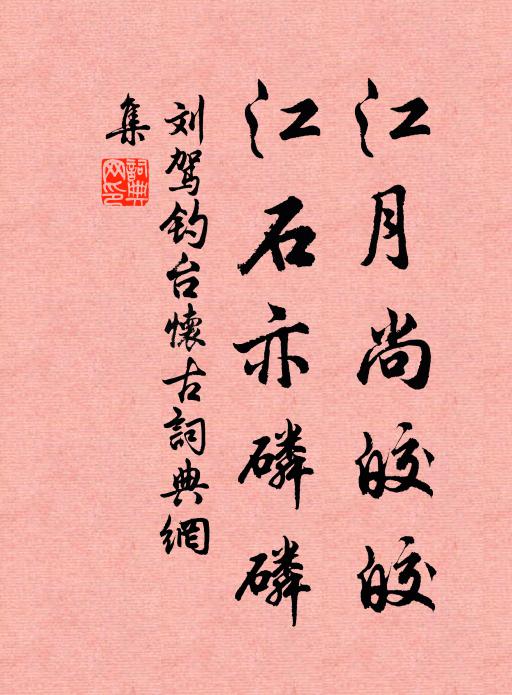 江月尚皎皎
江石亦磷磷
刘驾钓台懷古詞典網
集
詞典
网印